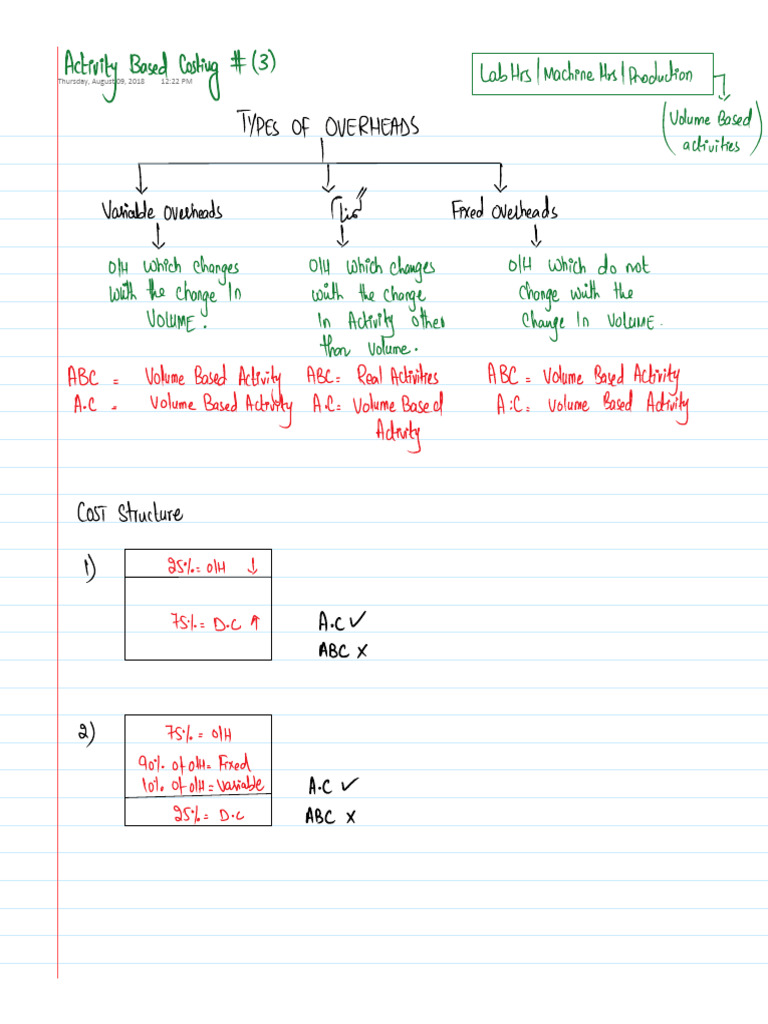 Activity Based Costing # (3)
Thursday, August 09, 2018 12:22 PM
Lab Hrs | Machine Hrs | Production
(Volume Based
activities)
TYPES OF OVERHEADS
Variable overheads
Fixed overheads
O/H which changes
with the change In
VOLUME.
O/H which changes
with the change
In Activity other
than volume.
O/H which do not
Change with the
Change In VOLUME.
ABC = Volume Based Activity
A.C = Volume Based Activity
ABC = Real Activities
A.C = Volume Based
Activity
ABC = Volume Based Activity
A.C = Volume Based Activity
COST Structure
1)
25% = O/H ↓
75% = D.C ↑
A.C ✓
ABC ×
2)
75% = O/H
90% of O/H = Fixed
10% of O/H = Variable
25% = D.C
A.C ✓
ABC ×